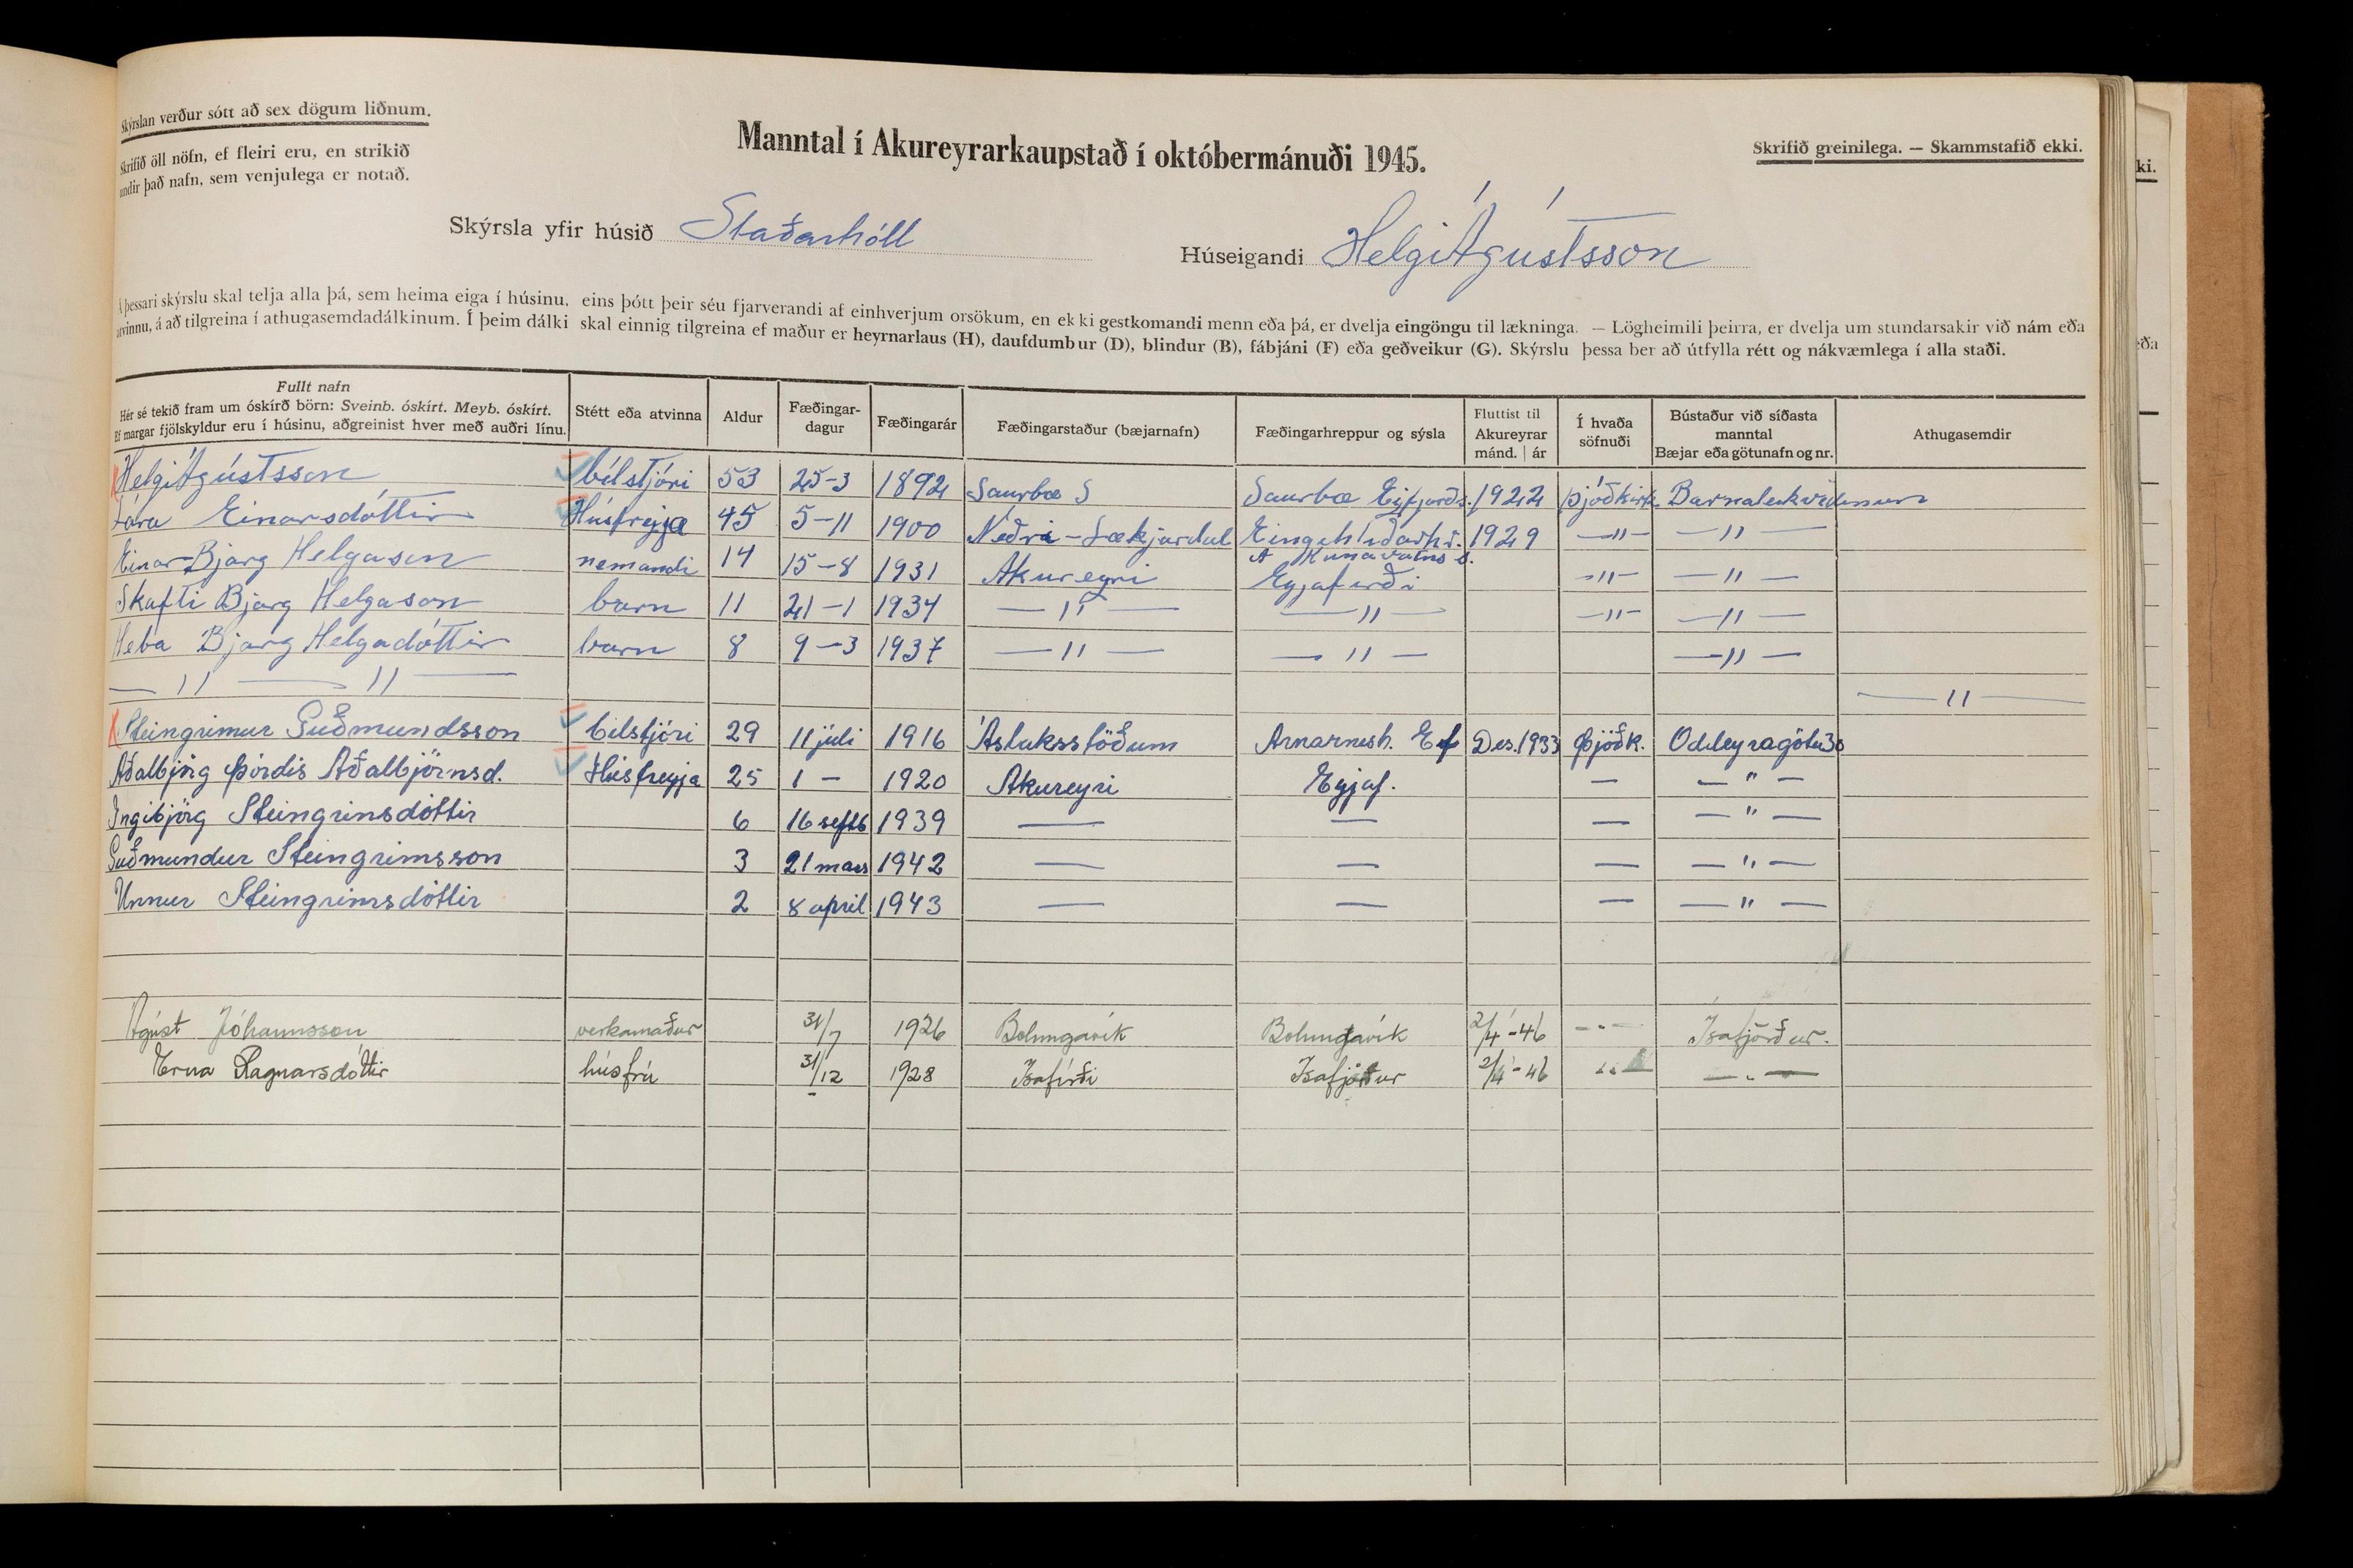 Skýrslan verður sótt að sex dögum liðnum.
Skrifið öll nöfn, ef fleiri eru, en strikið
undir það nafn, sem venjulega er notað.
Manntal í Akureyrarkaupstað í októbermánuði 1945.
Skrifið greinilega. — Skammstafið ekki.
Skýrsla yfir húsið Staðarhóll
Húseigandi Helgi Ágústsson
Á þessari skýrslu skal telja alla þá, sem heima eiga í húsinu, eins þótt þeir séu fjarverandi af einhverjum orsökum, en ekki gestkomandi menn eða þá, er dvelja eingöngu til lækninga. — Lögheimili þeirra, er dvelja um stundarsakir við nám eða
atvinnu, á að tilgreina í athugasemdadálkinum. Í þeim dálki skal einnig tilgreina ef maður er heyrnarlaus (H), daufdumbur (D), blindur (B), fábjáni (F) eða geðveikur (G). Skýrslu þessa ber að útfylla rétt og nákvæmlega í alla staði.
Fullt nafn
Hér sé tekið fram um óskírð börn: Sveinb. óskírt. Meyb. óskírt.
Ef margar fjölskyldur eru í húsinu, aðgreinist hver með auðri línu.
Stétt eða atvinna
Aldur
Fæðingar-
dagur
Fæðingarár
Fæðingarstaður (bæjarnafn)
Fæðingarhreppur og sýsla
Fluttist til
Akureyrar
mánd. | ár
Í hvaða
söfnuði
Bústaður við síðasta
manntal
Bæjar eða götunafn og nr.
Athugasemdir
Helgi Ágústsson bílstjóri 53 25-3 1892 Saurbæ S Saurbæ Eyjfjarðs. 1922 Þjóðkirk.
Þóra Einarsdóttir Húsfreyja 45 5-11 1900 Neðri-Lækjardal 1929 —"— —"—
Einar Bjarg Helgason nemandi 14 15-8 1931 Akureyri Eyjafirði —"— —"—
Skafti Bjarg Helgason barn 11 21-1 1934 —"— —"— —"— —"—
Heba Bjarg Helgadóttir barn 8 9-3 1937 —"— —"— —"—
—"— —"— —"—
Steingrimur Guðmundsson bilstjóri 29 11 júli 1916 Áslaksstöðum Arnarnesh. Eyf Des. 1933 Þjóðk. Oddeyragötu 38
Aðalbjörg Þórdis Aðalbjörnsd. Húsfreyja 25 1 — 1920 Akureyri Eyjaf. — —"—
Ingibjörg Steingrimsdóttir 6 16 septb 1939 — — — —"—
Guðmundur Steingrimsson 3 21 mars 1942 — — — —"—
Unnur Steingrimsdóttir 2 8 april 1943 — — — —"—
Ágúst Jóhannsson verkamaður 31/7 1926 Bolungavík Bolungavík 2/4-46 -"- Ísafjörður.
Erna Ragnarsdóttir húsfrú 31/12 1928 Ísafirði Ísafjörður 2/4-46 " —"—
ki.
eða